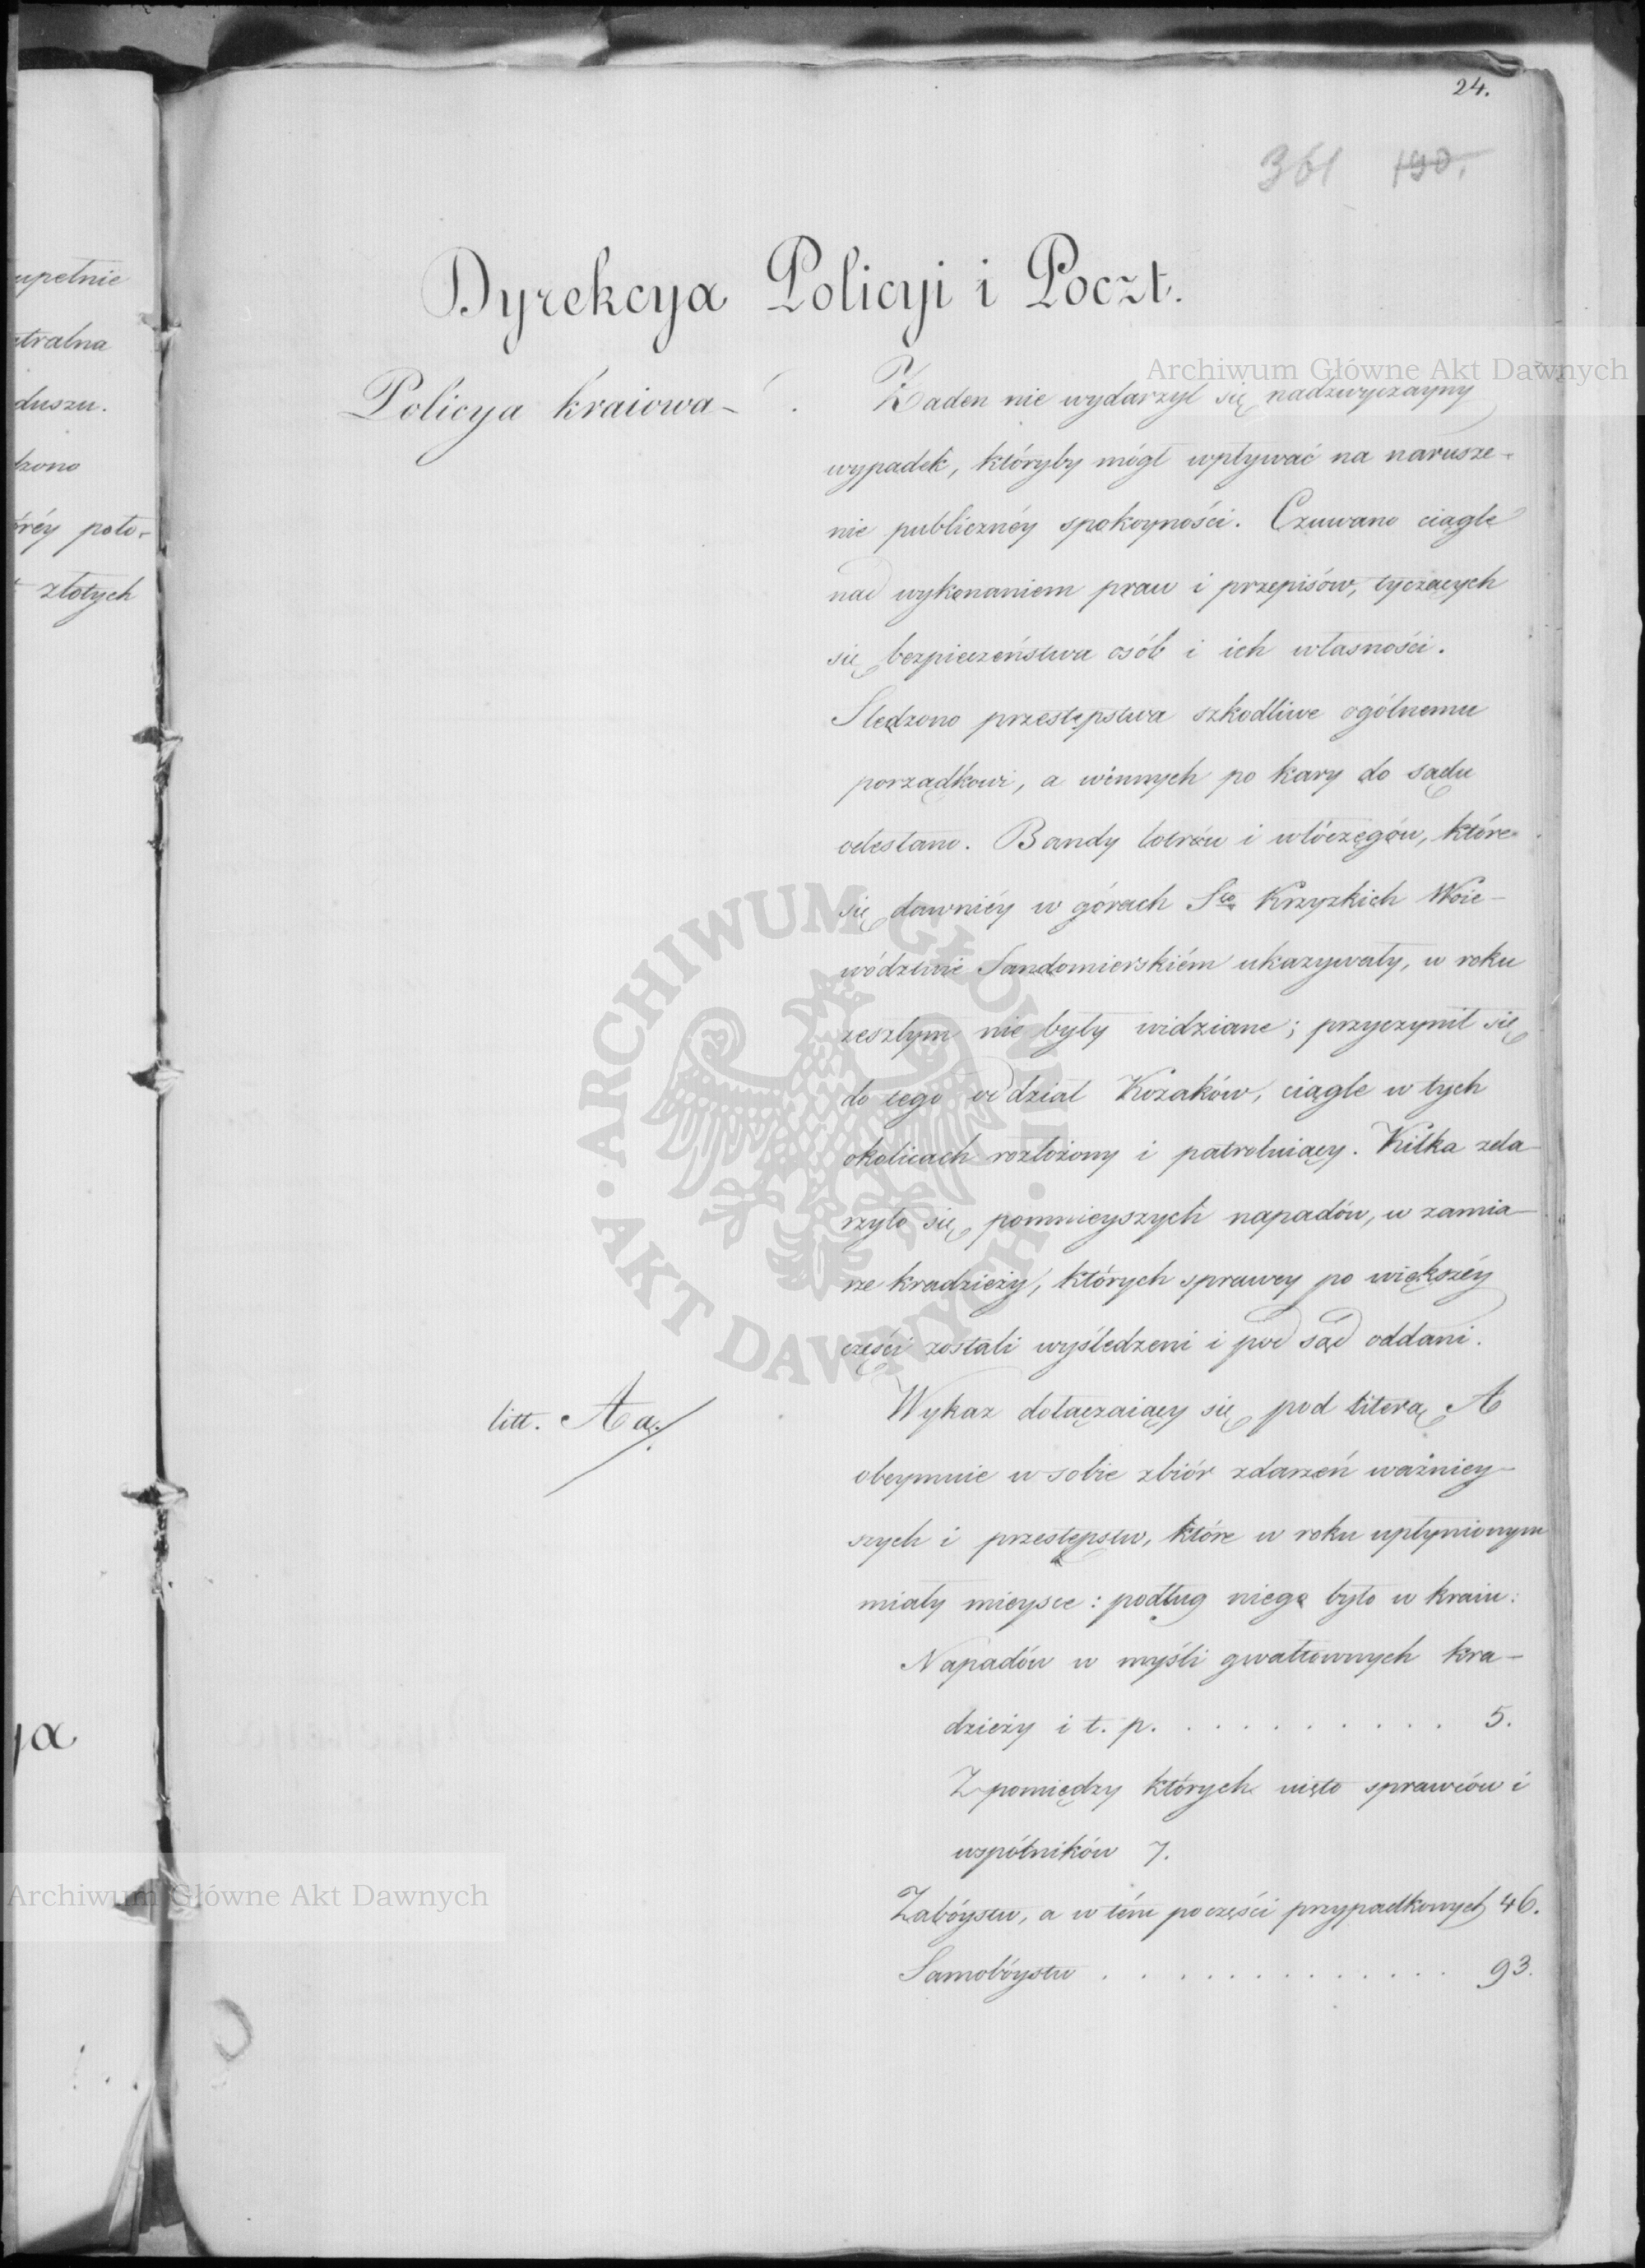 24.
361 190.
upełnie
ntralna
duszu.
bzono
óréy poło-
złotych
ya
Dyrekcya Policyi i Poczt.
Policya kraiowa - .
Żaden nie wydarzył się nadzwyczayny
wypadek, któryby mógł wpływać na narusze-
nie publicznéy spokoyności. Czuwano ciągle
nad wykonaniem praw i przepisów, tyczących
się bezpieczeństwa osób i ich własności.
Sledzono przestępstwa szkodliwe ogólnemu
porządkowi, a winnych po kary do sądu
odesłano. Bandy łotrów i włóczęgów, które
się dawniéy w górach Sto Krzyzkich Woie-
wództwie Sandomierskiém ukazywały, w roku
zeszłym nie były widziane; przyczynił się
do tego oddział Kozaków, ciągle w tych
okolicach rozłożony i patroluiący. Kilka zda-
rzyło się pomnieyszych napadów, w zamia-
rze kradzieży, których sprawcy po większéy
części zostali wyśledzeni i pod sąd oddani.
litt. A a./.
Wykaz dołączaiący się pod literą A
obeymuie w sobie zbiór zdarzeń ważniey-
szych i przestępstw, które w roku upłynionym
miały mieysce: podług niego było w kraiu:
Napadów w myśli gwałtownych kra-
dzieży i t. p. . . . . . . . . . . 5.
Z pomiędzy których uięto sprawców i
wspólników 7.
Zabóystw, a w tém po części przypadkowych 46.
Samobóystw . . . . . . . . . . . . . 93.
Archiwum Główne Akt Dawnych
Archiwum Główne Akt Dawnych
ARCHIWUM GŁÓWNE · AKT DAWNYCH ·